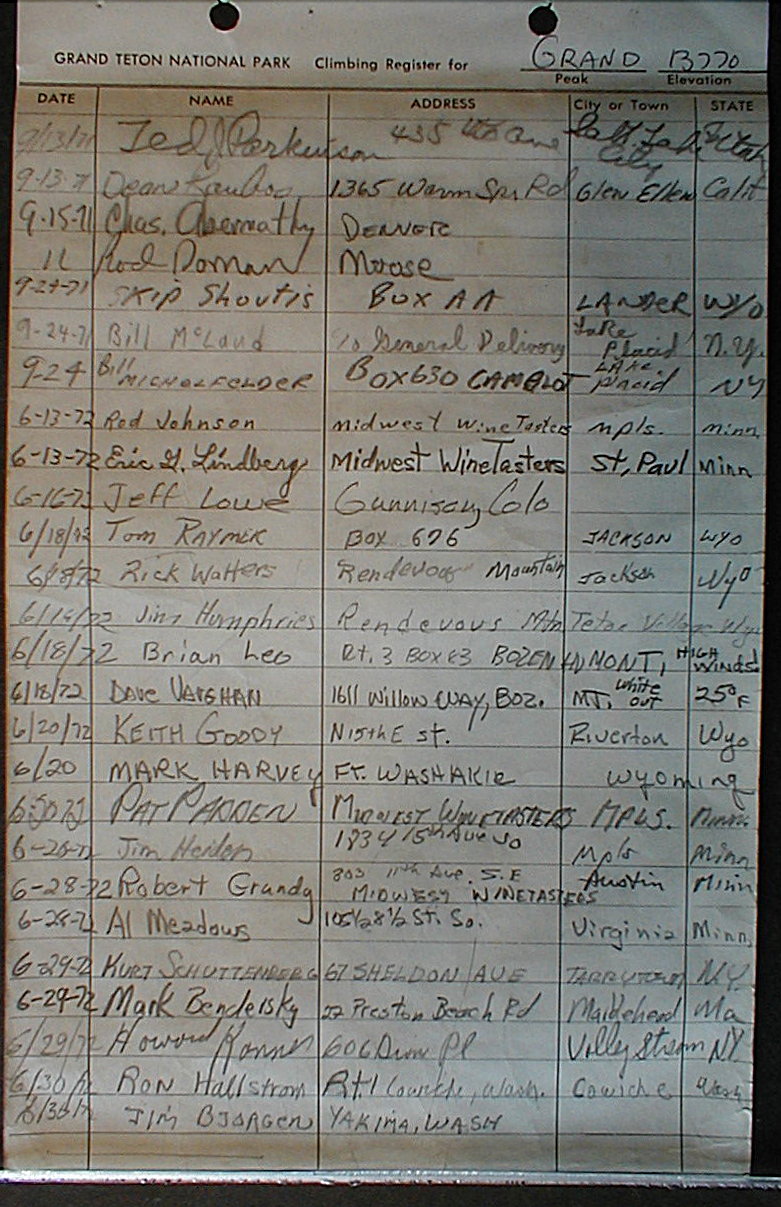 GRAND TETON NATIONAL PARK Climbing Register for GRAND 13770
Peak Elevation
DATE NAME ADDRESS City or Town STATE
9/13/71 Ted Parkinson 435 Ave Salt Lake City Utah
9-13-71 Dean 1365 Warm Spr Rd Glen Ellen Calif
9-15-71 Chas. Abernathy DENVER
11 Rod Dornan Moose
9-24-71 SKIP Shoutis BOX AA LANDER WYO
9-24-71 Bill McLaud c/o General Delivery Lake Placid N.Y.
9-24 Bill MICHOLFELDER BOX 630 CAMELOT LAKE Placid NY
6-13-72 Rod Johnson Midwest WineTasters Mpls. Minn
6-13-72 Eric G. Lindberg Midwest WineTasters St, Paul Minn
6-16-72 Jeff Lowe Gunnison, Colo
6/18/72 Tom RAYMER BOX 676 JACKSON WYO
6/18/72 Rick Watters Rendevous Mountain Jackson Wyo
6/18/72 Jim Humphries Rendevous Mtn Teton Village Wyo
6/18/72 Brian Leo Rt. 3 BOX 83 BOZEMAN MONT, HIGH WINDS!
6/18/72 DAVE VAUGHAN 1611 Willow WAY, BOZ. MT, white out 25° F
6/20/72 KEITH GOODY N 15th E st. Riverton Wyo
6/20 MARK HARVEY FT. WASHAKIE wyoming
PAT PADDEN MIDWEST WINETASTERS MPLS. Minn.
6-28-72 Jim Heiden 1934 15th Ave So Mpls Minn
6-28-72 Robert Grundy 803 11th Ave. S.E MIDWEST WINETASTERS Austin Minn
6-28-72 Al Meadows 105 1/2 8 1/2 St. So. Virginia Minn
6-29-72 KURT SCHUTTENBERG 67 SHELDON AVE TARRYTOWN N.Y.
6-29-72 Mark Bendersky 22 Preston Beach Rd Marblehead Ma
6/29/72 Howard 606 Pl Valley Stream NY
6/30/72 RON Hallstrom Rt. 1 Cowiche, Wash. Cowiche Wash
6/30/72 JIM BJORGEN YAKIMA, WASH